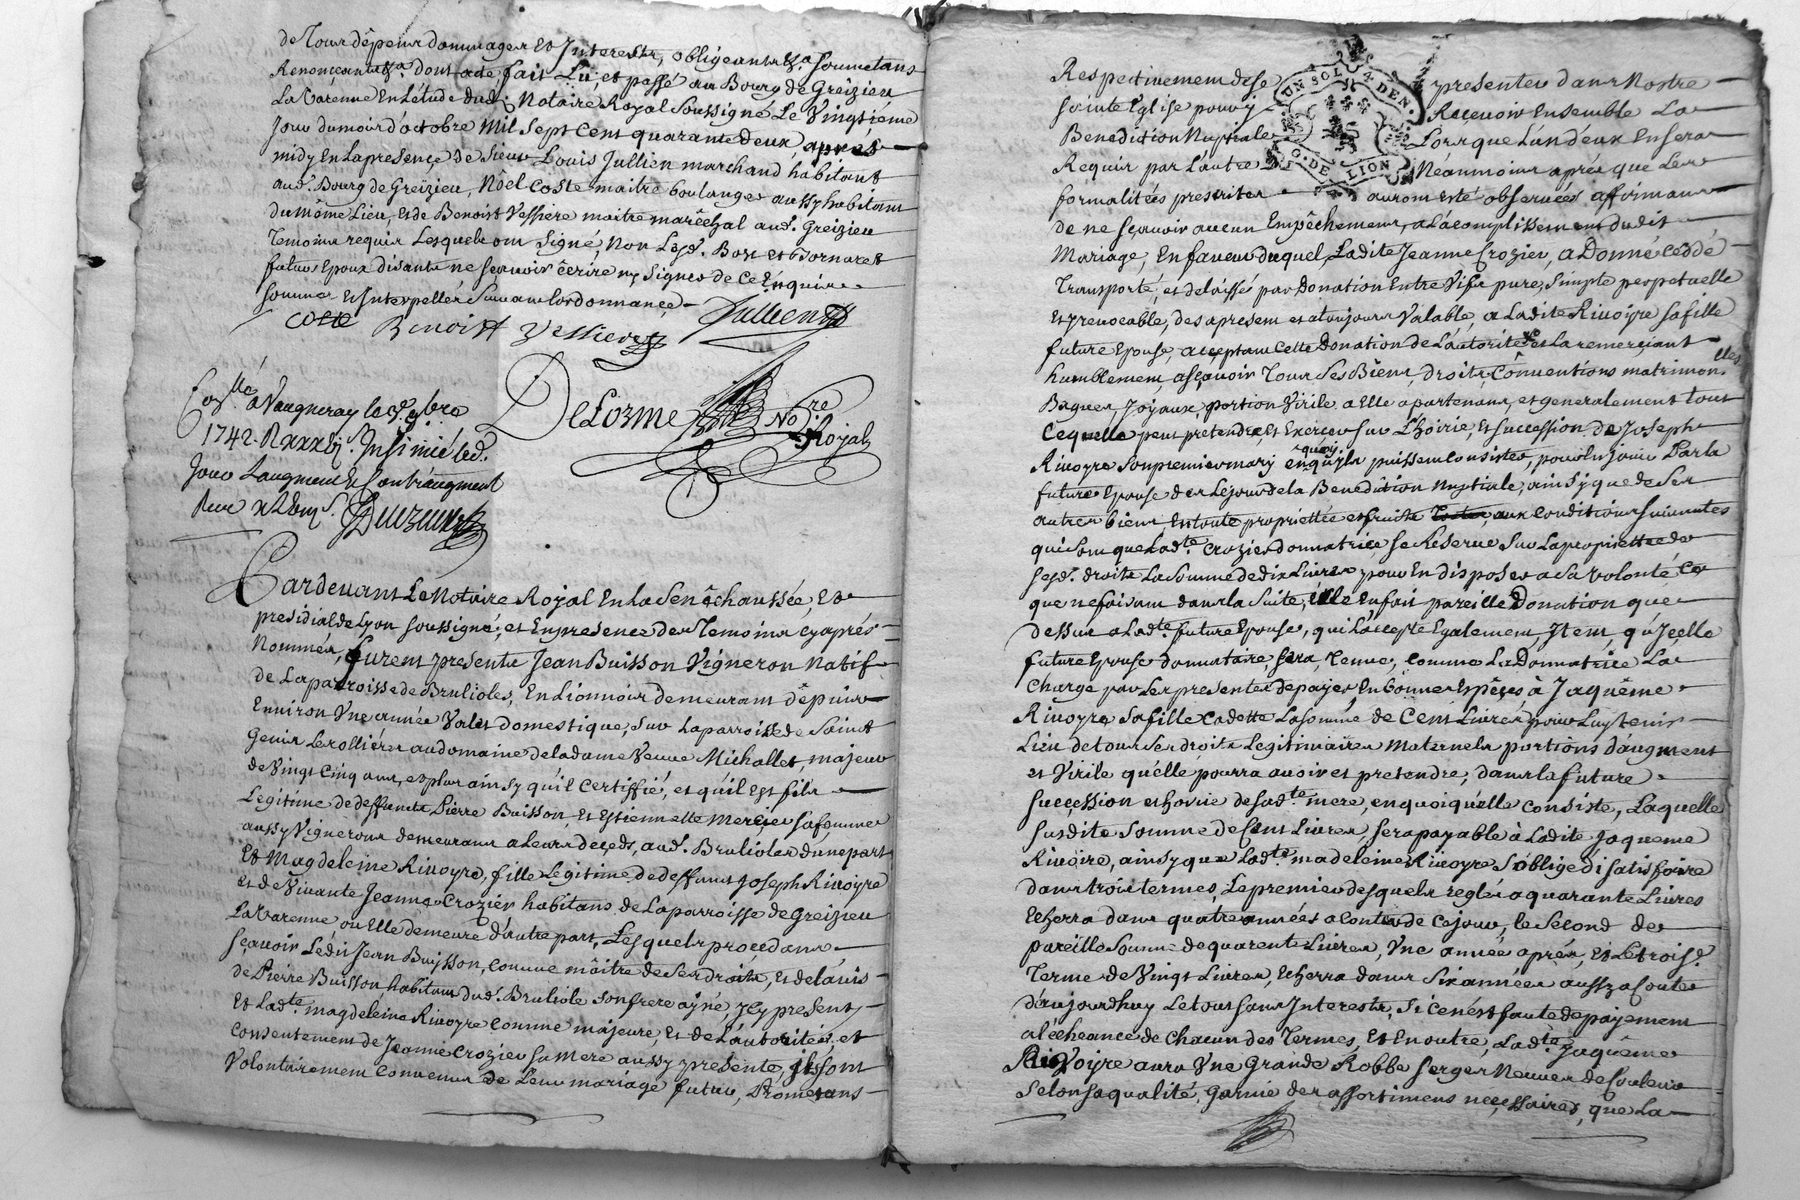 de Tous dêpens dommages Et Interests, obligeants &a. soumetans
Renonçeants &a. dont acte fait Lu, et passé au Bourg de Greizieu
La Varenne En Létude dud. Notaire Royal soussigné Le Vingtiéme
Jour du mois d'octobre Mil Sept Cent quarante deux aprés
midy En la presençe de Sieur Louis Jullien marchand habitant
aud. Bourg de Greizieu, Nôel Coste maitre boulanger aussy habitant
du même Lieu, et de Benoist Vessiere maitre marêchal aud. Greizieu
Temoins requis Lesquels ont signé, Non Lesd. Bory et Tornaret
futurs Epoux disants ne sçavoir êcrire ny signer de ce Enquis
sommés et Interpellés Suivant lordonnançe
Coste Benoist Vessiere Jullien
Delorme No.re Royal
Con.llé à Vaugneray le 3e. 9bre
1742. R Insinué led.
Jour Laugment & Contr'augment
Reçu
Pardevant Le Notaire Royal En la Senêchaussée, Et
presidial de Lyon soussigné, et En presence des Temoins cy aprés
Nommés, furent presents Jean Buisson Vigneron Natif
de La parroisse de Brulioles, En Lionnois demeurant dêpuis
Environ Une année Valet domestique, Sur La parroisse de Saint
Genis Lerollières au domaine de la dame Veuve Michallet, majeur
de Vingt Cinq ans, et plus ainsy qu'il Certiffie, et qu'il Est fils
Legitime de deffuncts Pierre Buisson, Et Estiennette Merçier sa femme
aussy Vignerons demeurans a Leurs deçeds, aud. Brulioles d'une part
Et Magdeleine Rivoyre, fille Legitime de deffunt Joseph Rivoyre
et de Vivante Jeanne Crozier habitans de La parroisse de Greizieu
La Varenne ou Elle demeure d'autre part, Lesquels proçedans
sçavoir Ledit Jean Buisson, Comme môitre de Ses droits, et de l'avis
de Pierre Buisson habitant dud. Bruliole son frere ayné, Icy present,
Et Lad.te magdeleine Rivoyre Comme majeure, Et de L'autorité, et
Consentement de Jeanne Crozier sa Mere aussy presente, ils sont
Volontairement Convenus de Leur mariage futur, Prometans
Respectivement de Se presenter dans Nostre
sainte Eglise pour y Reçevoir Ensemble La
Benediction Nuptiale Lorsque Lun d'eux En sera
Requis par Lautre Néanmoins aprés que Les
formalités prescrites auront esté observées affirmans
UN SOL 4. DEN.
G. DE LION
de ne sçavoir aucun Empêchement, a L'açomplissement dudit
Mariage, En faveur duquel Ladite Jeanne Crozier, a Donné Ceddé
Transporté, et delaissé par Donation Entre Vifs pure, Simple perpetuelle
et yrrevocable, des apresent et a toujours Valable, a Ladite Rivoyre sa fille
future Epouse, açceptant Cette Donation de L'autorité et La remerçiant
humblement a sçavoir Tous Ses Biens, droits, Conventions matrimon.elles
Bagues, Joyaux, portion Virile a Elle apartenans, et generalement tout
Cequelle peut prétendre et Exerçer sur L'hoirie, Et succession de Joseph
Rivoyre Son premier mary en quoy quils puissent consister, pour En Jouir Par la
future Epouse des Le Jour de la Benediction Nuptiale, ainsy que de Ses
autres biens En toute proprietté et fruits aux Conditions suivantes
qui sont que Lad.te Crozier donnatrice se Réserve Sur La proprietté de
Sesd. droits La Somme de dix Livres pour En disposer a Sa Volonté Ce
que ne faisant dans la Suite, Elle En fait pareille Donation que
dessus a Lad.te future Epouse, qui L'accepte Egalement, Item, qu'Içelle
future Epouse donnataire, Sera, Tenue, Comme La Donnatrice La
Charge par Les presentes de payer En bonnes Espêçes à Jaquême
Rivoyre Sa fille Cadette La somme de Cent Livres pour Luy tenir
Lieu de tous Ses droits Legitimaires Maternels portions d'augment
et Virile qu'elle pourra avoir et pretendre, dans la future
Succession et hoirie de Sad.te mere, en quoi qu'elle Consiste, Laquelle
Susdite Somme de Cent Livres, Sera payable à Ladite Jaqueme
Rivoire, ainsy que Lad.te madeleine Rivoyre S'oblige d'y satisfaire
dans trois termes, Le premier desquels reglé a quarante Livres
Echerra dans quatre années a Conter de Ce jour, le Second de
pareille Somme de quarente Livres, Une année aprés, Et Le trois.e
Terme de Vingt Livres, Echerra dans Six années aussy a Conter
d'aujourdhuy Le tout sans Interests, Si Ce n'est faute de payement
a l'écheance de Chacun des Termes, Et En outre, Lad.te Jaquême
Rivoyre aura Une Grande Robbe Serge Neuve de Couleur
Selon sa qualité, Garnie des assortimens neçessaires, que La